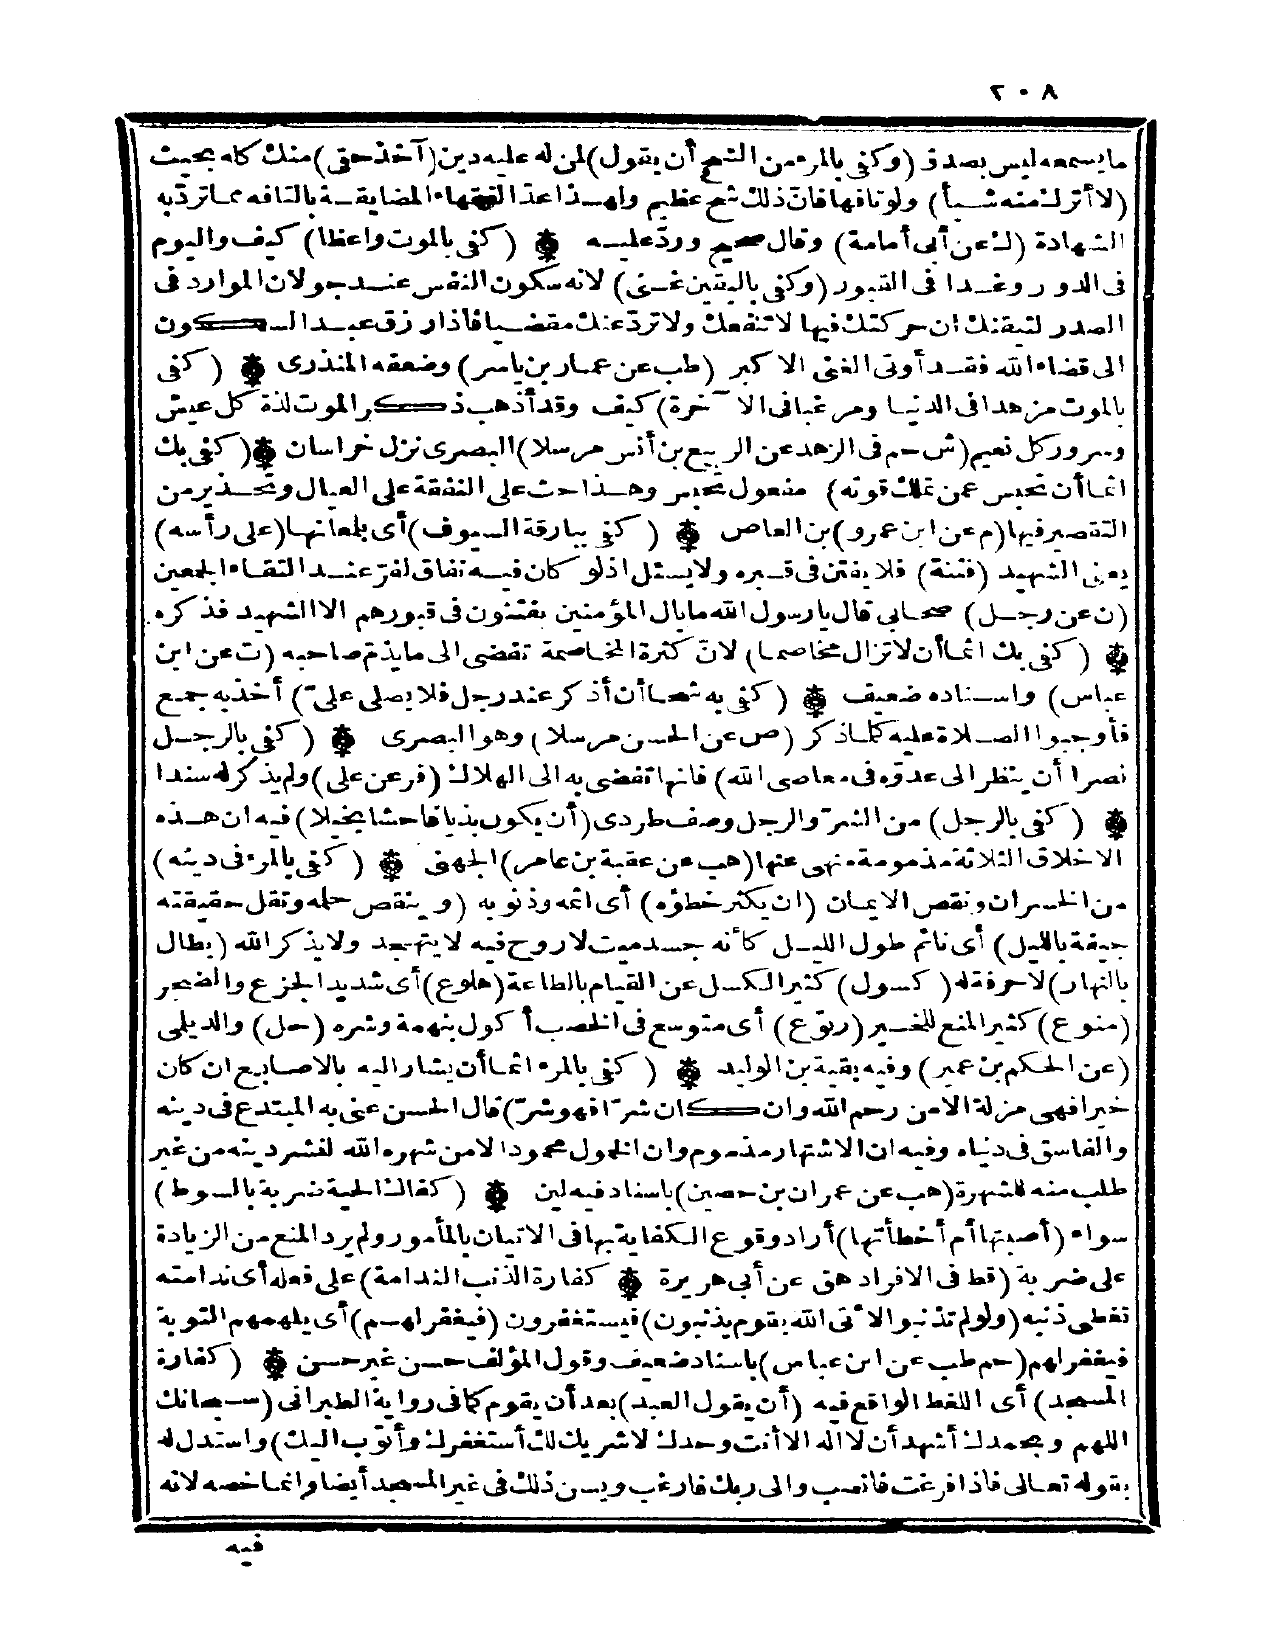 ٢٠٨
ما يسمعه ليس بصدق (وكفى بالمرء من الشح أن يقول) لمن له عليه دين (آخذ حقى) منك كله بحيث
(لا أترك منه شيأ) ولو تافها فان ذلك شح عظيم ولهذا عد الفقهاء المضايقة بالتافه مما ترد به
الشهادة (ك عن أبى أمامة) وقال صحيح ورد عليه ۞ (كفى بالموت واعظا) كيف واليوم
فى الدور وغدا فى القبور (وكفى باليقين غنى) لانه سكون النفس عند جولان الموارد فى
الصدر لتيقنك ان حركتك فيها لا تنفعك ولا ترد عنك مقضيا فاذا رزق عبد السكون
الى قضاء الله فقد أوتى الغنى الاكبر (طب عن عمار بن ياسر) وضعفه المنذرى ۞ (كفى
بالموت مزهدا فى الدنيا ومرغبا فى الآخرة) كيف وقد أذهب ذكر الموت لذة كل عيش
وسرور كل نعيم (ش حم فى الزهد عن الربيع بن أنس مرسلا) البصرى نزل خراسان ۞ (كفى بك
اثما أن تحبس عمن تملك قوته) مفعول تحبس وهذا حث على النفقة على العيال وتحذير من
التقصير فيها (م عن ابن عمرو) بن العاص ۞ (كفى ببارقة السيوف) أى بلمعانها (على رأسه)
يعنى الشهيد (فتنة) فلا يفتن فى قبره ولا يسئل اذ لو كان فيه نفاق لفر عند التقاء الجمعين
(ن عن رجل) صحابى قال يا رسول الله ما بال المؤمنين يفتنون فى قبورهم الا الشهيد فذكره
۞ (كفى بك اثما أن لا تزال مخاصما) لان كثرة المخاصمة تفضى الى ما يذم صاحبه (ت عن ابن
عباس) واسناده ضعيف ۞ (كفى به شحا أن أذكر عند رجل فلا يصلى علىّ) أخذ به جمع
فأوجبوا الصلاة عليه كلما ذكر (ص عن الحسن مرسلا) وهو البصرى ۞ (كفى بالرجل
نصرا أن ينظر الى عدوه فى معاصى الله) فانها تفضى به الى الهلاك (فر عن على) ولم يذكر له سندا
۞ (كفى بالرجل) من الشر والرجل وصف طردى (أن يكون بذيا فاحشا بخيلا) فيه ان هذه
الاخلاق الثلاثة مذمومة منهى عنها (هب عن عقبة بن عامر) الجهنى ۞ (كفى بالمرء فى دينه)
من الخسران ونقص الايمان (ان يكثر خطؤه) أى اثمه وذنوبه (وينقص حلمه وتقل حقيقته
جيفة بالليل) أى نائم طول الليل كأنه جسد ميت لا روح فيه لا يتهجد ولا يذكر الله (بطال
بالنهار) لا حرفة له (كسول) كثير الكسل عن القيام بالطاعة (هلوع) أى شديد الجزع والضجر
(منوع) كثير المنع للخير (رتوع) أى متوسع فى الخصب أكول بنهمة وشره (حل) والديلى
(عن الحكم بن عمير) وفيه بقية بن الوليد ۞ (كفى بالمرء اثما أن يشار اليه بالاصابع ان كان
خيرا فهى مزلة الا من رحم الله وان كان شرّا فهو شرّ) قال الحسن عنى به المبتدع فى دينه
والفاسق فى دنياه وفيه ان الاشتهار مذموم وان الخمول محمود الا من شهره الله لنشر دينه من غير
طلب منه للشهرة (هب عن عمران بن حصين) باسناد فيه لين ۞ (كفاك الحية ضربة بالسوط)
سواء (أصبتها أم أخطأتها) أراد وقوع الكفاية بها فى الاتيان بالمأمور ولم يرد المنع من الزيادة
على ضربة (قط فى الافراد هق عن أبى هريرة ۞ كفارة الذنب الندامة) على فعله أى ندامته
تغطى ذنبه (ولو لم تذنبوا لأتى الله بقوم يذنبون) فيستغفرون (فيغفر لهم) أى يلهمهم التوبة
فيغفر لهم (حم طب عن ابن عباس) باسناد ضعيف وقول المؤلف حسن غير حسن ۞ (كفارة
المسجد) أى اللغط الواقع فيه (أن يقول العبد) بعد أن يقوم كما فى رواية الطبرانى (سبحانك
اللهم وبحمدك أشهد أن لا اله الا أنت وحدك لا شريك لك أستغفرك وأتوب اليك) واستدل له
بقوله تعالى فاذا فرغت فانصب والى ربك فارغب ويسن ذلك فى غير المسجد أيضا وانما خصه لانه
فيه